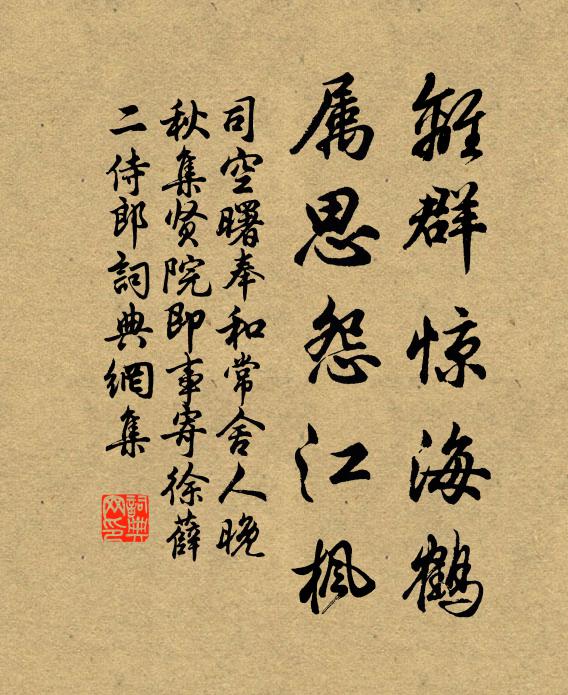 離群惊海鹤
属思怨江枫
司空曙奉和常舍人晚
秋集贤院即事寄徐薛
二侍郎詞典網集
詞典网印